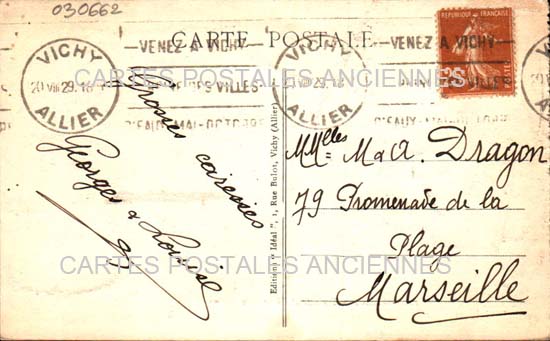 030662
CARTE POSTALE
VICHY
20 VIII 29
ALLIER
VENEZ A VICHY
VILLES
D'EAUX-MAI-OCTOBRE
VICHY
20 VIII 29
ALLIER
VENEZ A VICHY
VILLES
D'EAUX
REPUBLIQUE FRANÇAISE
CARTES POSTALES ANCIENNES
Grosses caresses
Georges & Louise
Editions "Idéal", 1, Rue Bulot, Vichy (Allier)
MMelles M & A. Dragon
79 Promenade de la
Plage
Marseille
CARTES POSTALES ANCIENNES